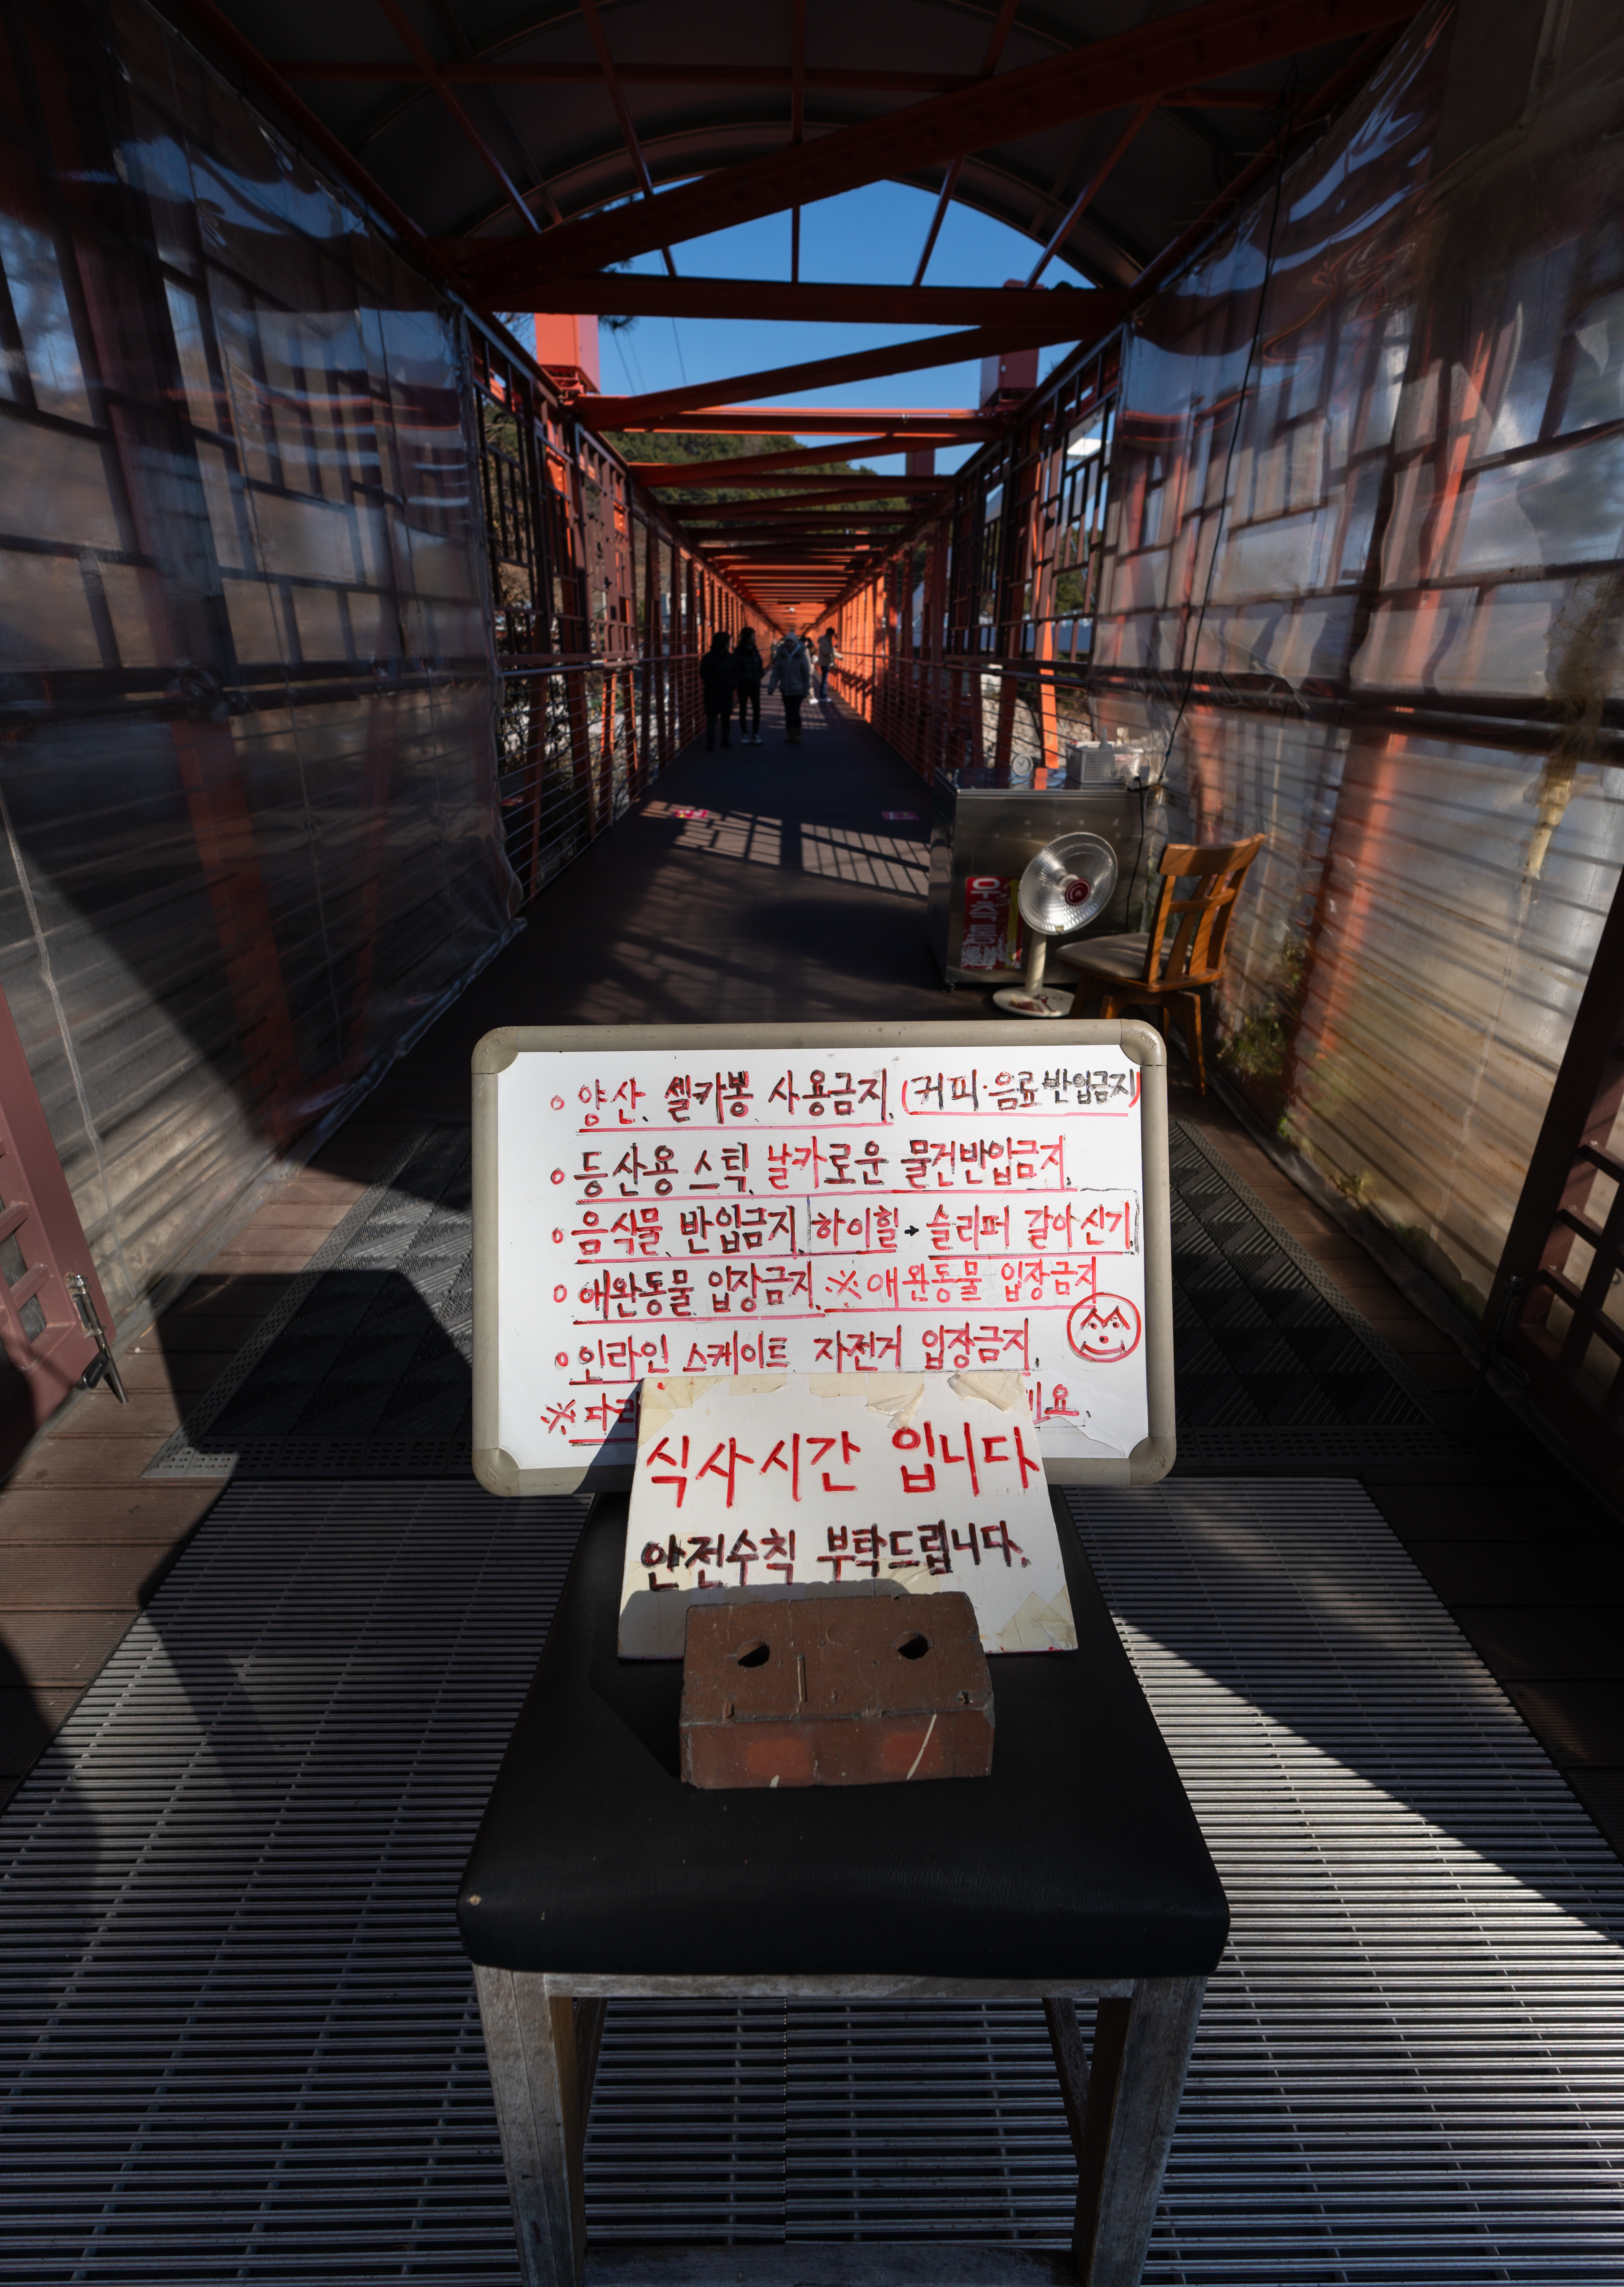 우측통행
◦ 양산, 셀카봉, 사용금지, (커피·음료 반입금지)
◦ 등산용 스틱, 날카로운 물건반입금지,
◦ 음식물, 반입금지, 하이힐 → 슬리퍼 갈아신기
◦ 애완동물 입장금지, ※ 애완동물 입장금지
◦ 인라인 스케이트 자전거 입장금지,
※
식사시간 입니다
안전수칙 부탁드립니다.